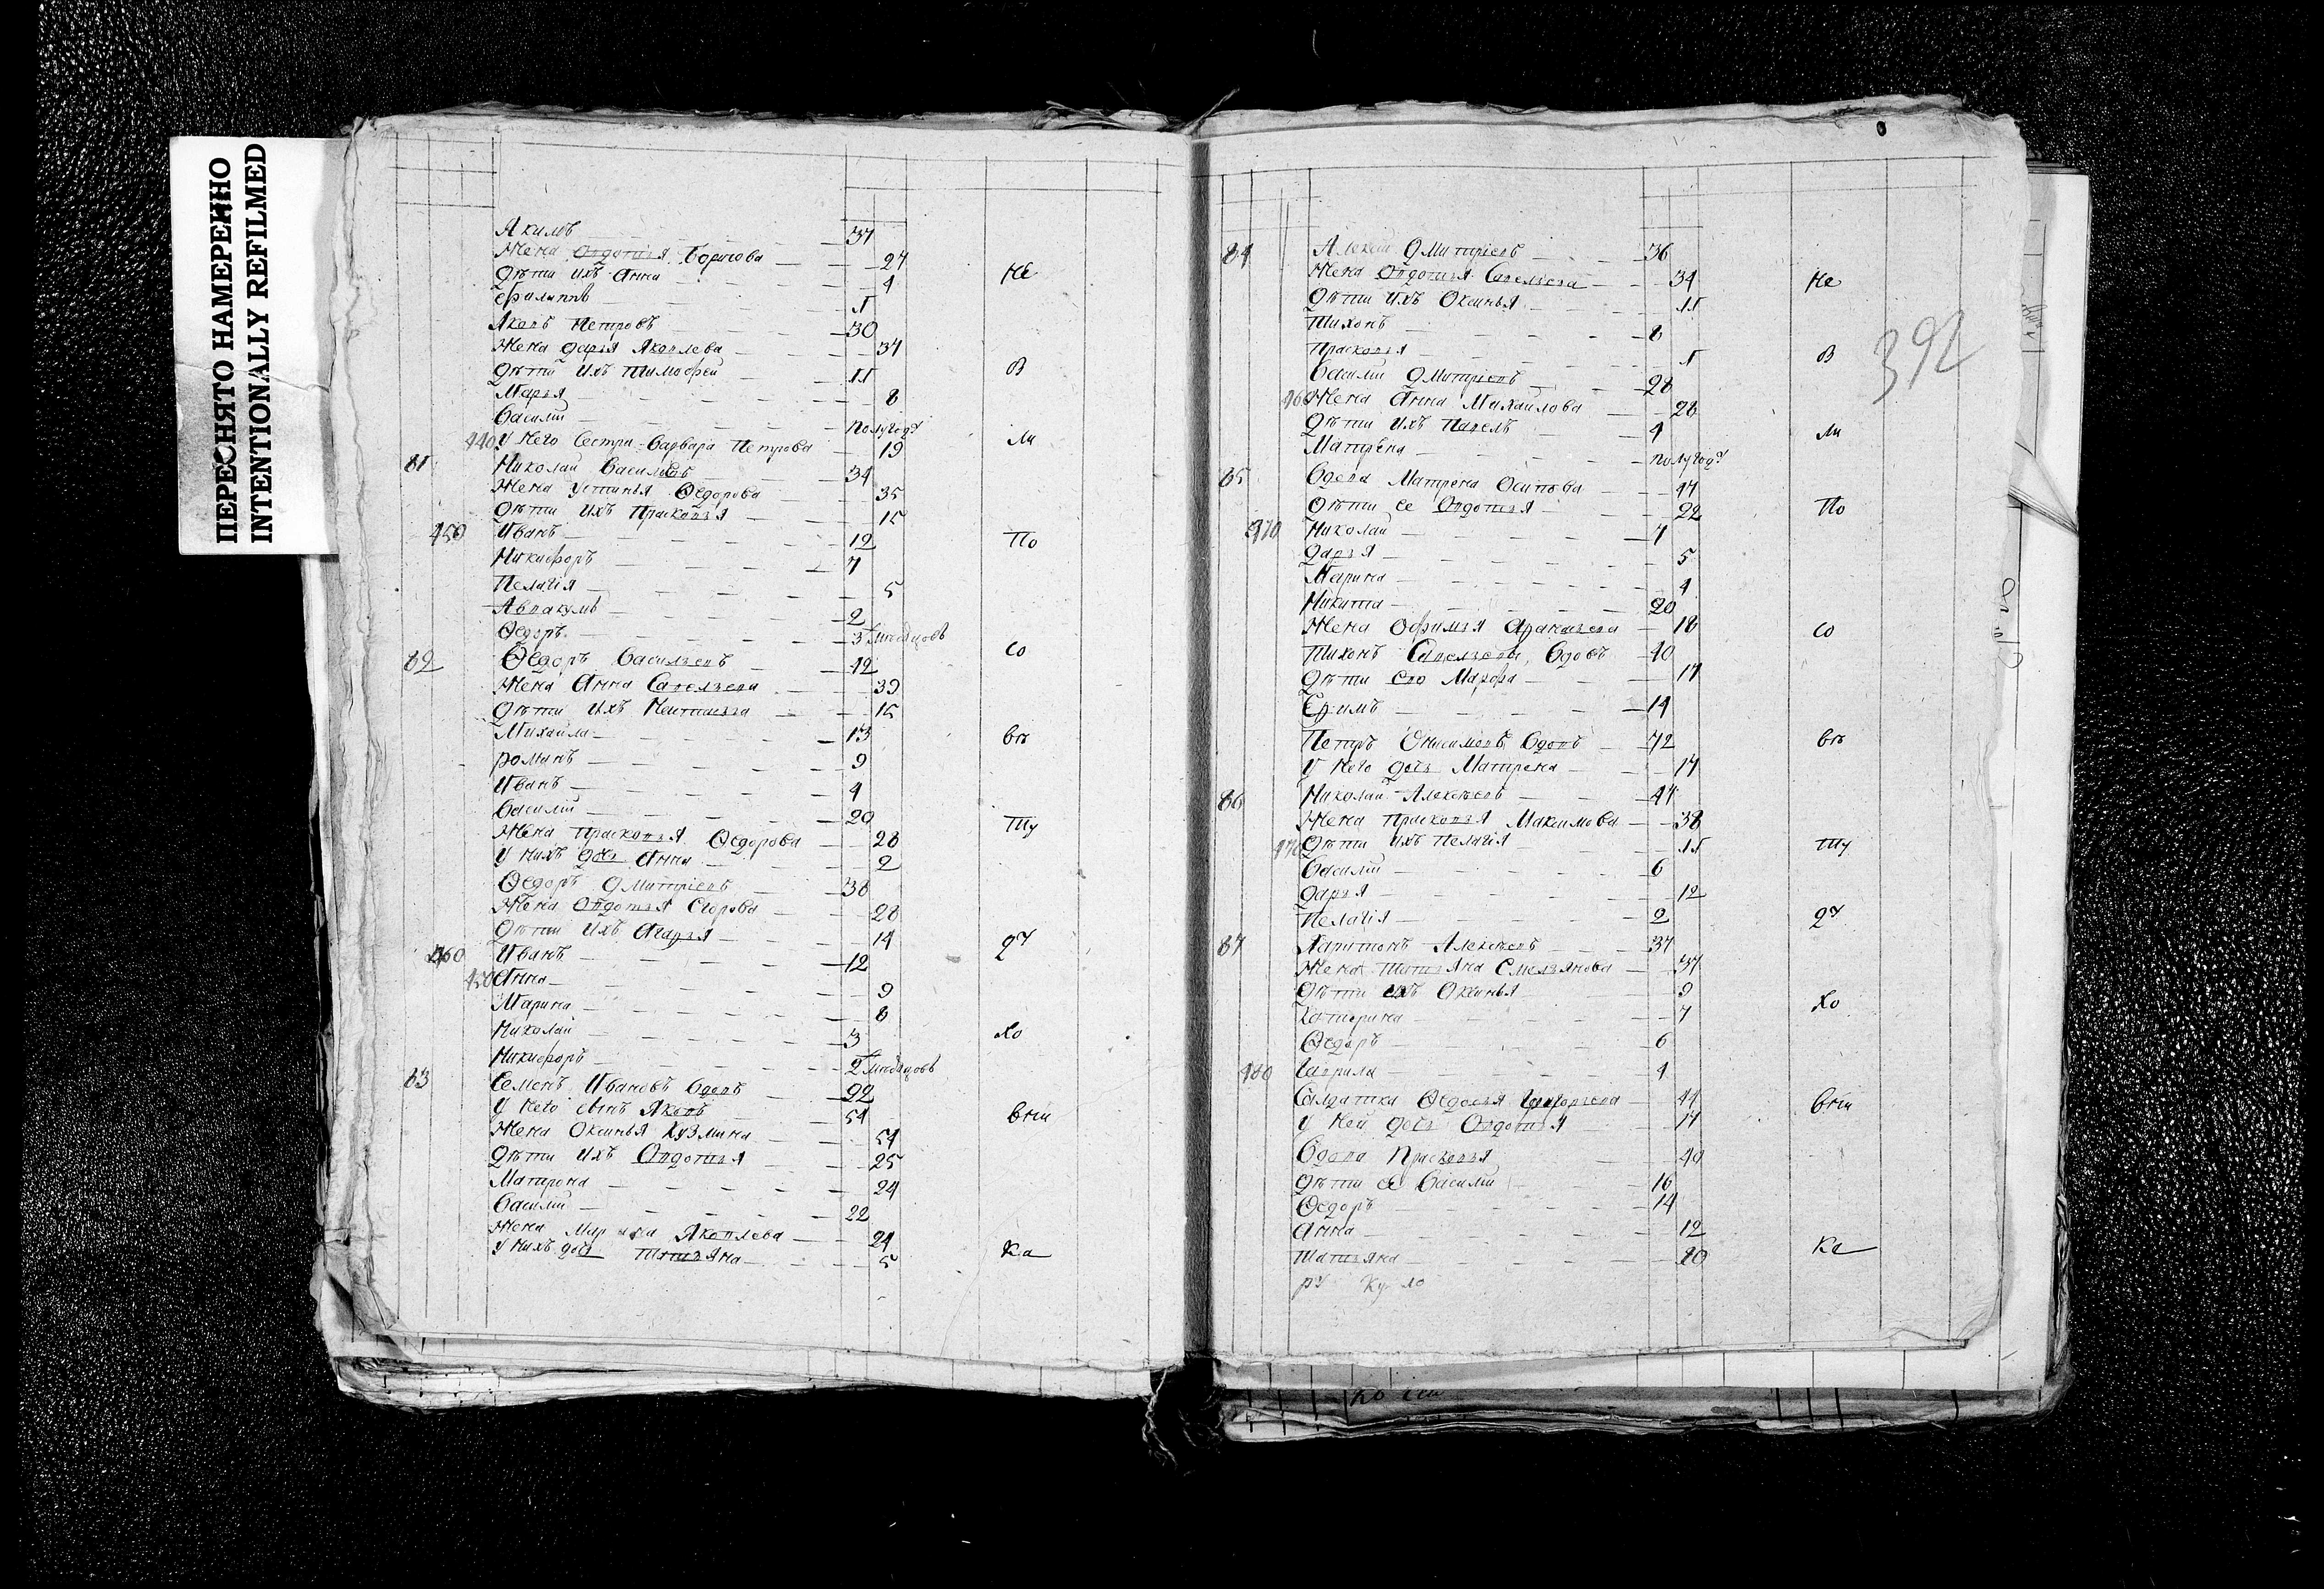 ПЕРЕСНЯТО НАМЕРЕННО
INTENTIONALLY REFILMED
Акимъ 37
Жена Овдотья Борисова 27
Дѣти ихъ Анна 4 Не
Филиппъ
Яковъ Петровъ 30
Жена Дарья Яковлева 37
Дѣти ихъ Тимофей 11 В
Марья 8
Василий полугоду
440 У него сестра Варвара Петрова 19 Ли
81 Николай Васильевъ 34
Жена Устинья Ѳедорова 35
Дѣти ихъ Прасковья 15
450 Иванъ 12 По
Никифоръ 7
Пелагія 5
Аввакумъ 2
Ѳедоръ 3 месяцовъ
82 Ѳедоръ Васильевъ 42 Со
Жена Анна Савельева 39
Дѣти ихъ Настасья 15
Михайла 13 вѣ
романъ 9
Иванъ 4
Василий 20
Жена Прасковья Ѳедорова 28 Ту
У нихъ дочь Анна 2
Ѳедоръ Дмитріевъ 38
Жена Овдотья Егорова 28
Дѣти ихъ Агафья 14
460 Иванъ 12 ду
450 Анна 9
Марина 8
Николай 3 Хо
Никифоръ 2 месяцовъ
83 Семенъ Ивановъ вдовъ 92
У него сынъ Яковъ 54 вни
Жена Оксинья Кузмина 51
Дѣти ихъ Овдотья 25
Матрона 24
Василий 22
Жена Марина Яковлева 24
У нихъ дочь Татьяна 5 Ка
392
84 Алексѣй Дмитріевъ 36
Жена Овдотья Савельева 34 Не
Дѣти ихъ Оксинья 11
Тихонъ 8
Прасковья В
Василий Дмитріевъ 28
460 Жена Анна Михайлова 28
Дѣти ихъ Павелъ 4 Ли
Матрена полугоду
85 Вдова Матрена Осипова 47
Дѣти ее Овдотья 22 По
470 Николай 7
Дарья 5
Марина 4
Никита 20
Жена Офимья Афанасьева 18 Со
Тихонъ Савельевъ, вдовъ 40
Дѣти его Марфа 17
Ефимъ 14
Петръ Онисимовъ вдовъ 72 вѣ
У него дочь Матрена 17
86 Николай Алексѣевъ 47
Жена Прасковья Максимова 38
470 Дѣти ихъ Пелагія 11 Ту
Василий 6
Дарья 12
Пелагія 2 ду
87 Харитонъ Алексѣевъ 37
Жена Татьяна Емельянова 37
Дѣти ихъ Оксинья 9
Катерина 7 Хо
Ѳедоръ 6
480 Гаврила 4
Солдатка Ѳедосья Григорьева 44 вни
У ней дочь Овдотья 17
Вдова Прасковья 40
Дѣти ее Василий 16
Ѳедоръ 14
Анна 12
Татьяна 20 Ка
ру